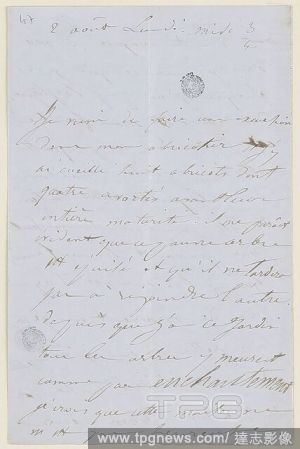 47
2 août Lundi midi 3/4
Je viens de faire une excursion
dans mon abricotier j'y
ai cueilli huit abricots dont
quatre avortés avant leur
entière maturité. il me paraît
évident que ce pauvre arbre
est épuisé et qu'il ne tardera
pas à rejoindre l'autre.
depuis que j'ai ce jardin
tous les arbres y meurent
comme par enchantement
je crois que cette
m'est
TPG
www.tpgnews.com/達志影像